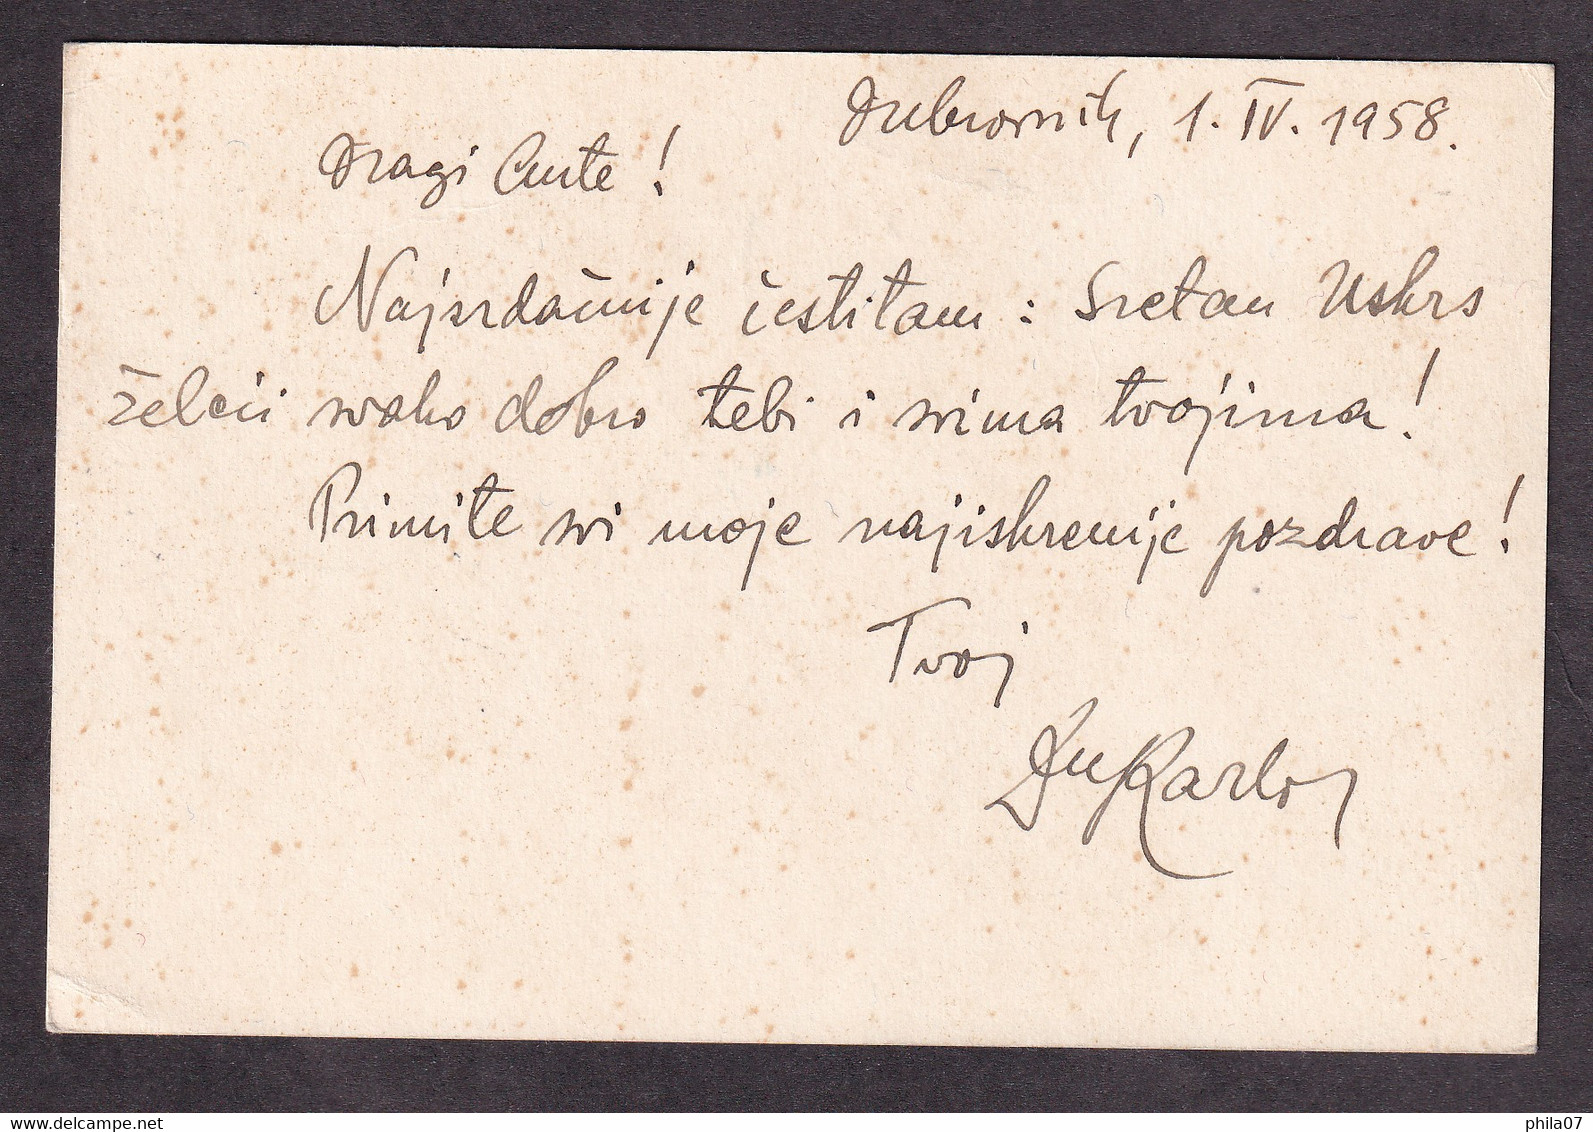 Dubrovnik, 1. IV. 1958.
Dragi Ante!
Najsrdačnije čestitam: Sretan Uskrs
želeći svako dobro tebi i svima tvojima!
Primite svi moje najiskrenije pozdrave!
Tvoj
Karlo
www.delcampe.net
phila07